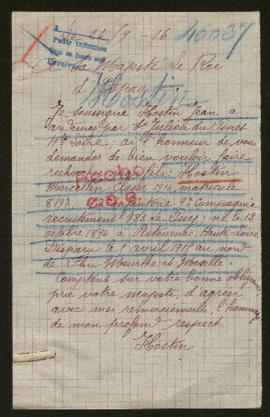 21/9 - 16 40037
A
Pedir informes
A Sa Majesté Le Roi
d'Espagne
Hostin
Je soussigné Hostin Jean a
par St Julien du
Hte Loire, ai l'honneur de vous
demander de bien vouloir faire
recherches fils: Hostin
Marcellin Classe 1914 matricule
8197 Infanterie 9e Compagnie
recrutement 783 de Puy: né le 12
octobre 1894 à Retournac Haute-Loire
Disparu le 5 avril 1915 au nord
de Flirey Meurthe et Moselle.
Comptant sur votre bonne
prie votre majesté, d'agréer
avec mes remerciements, l'hommage
de mon profond respect.
Hostin